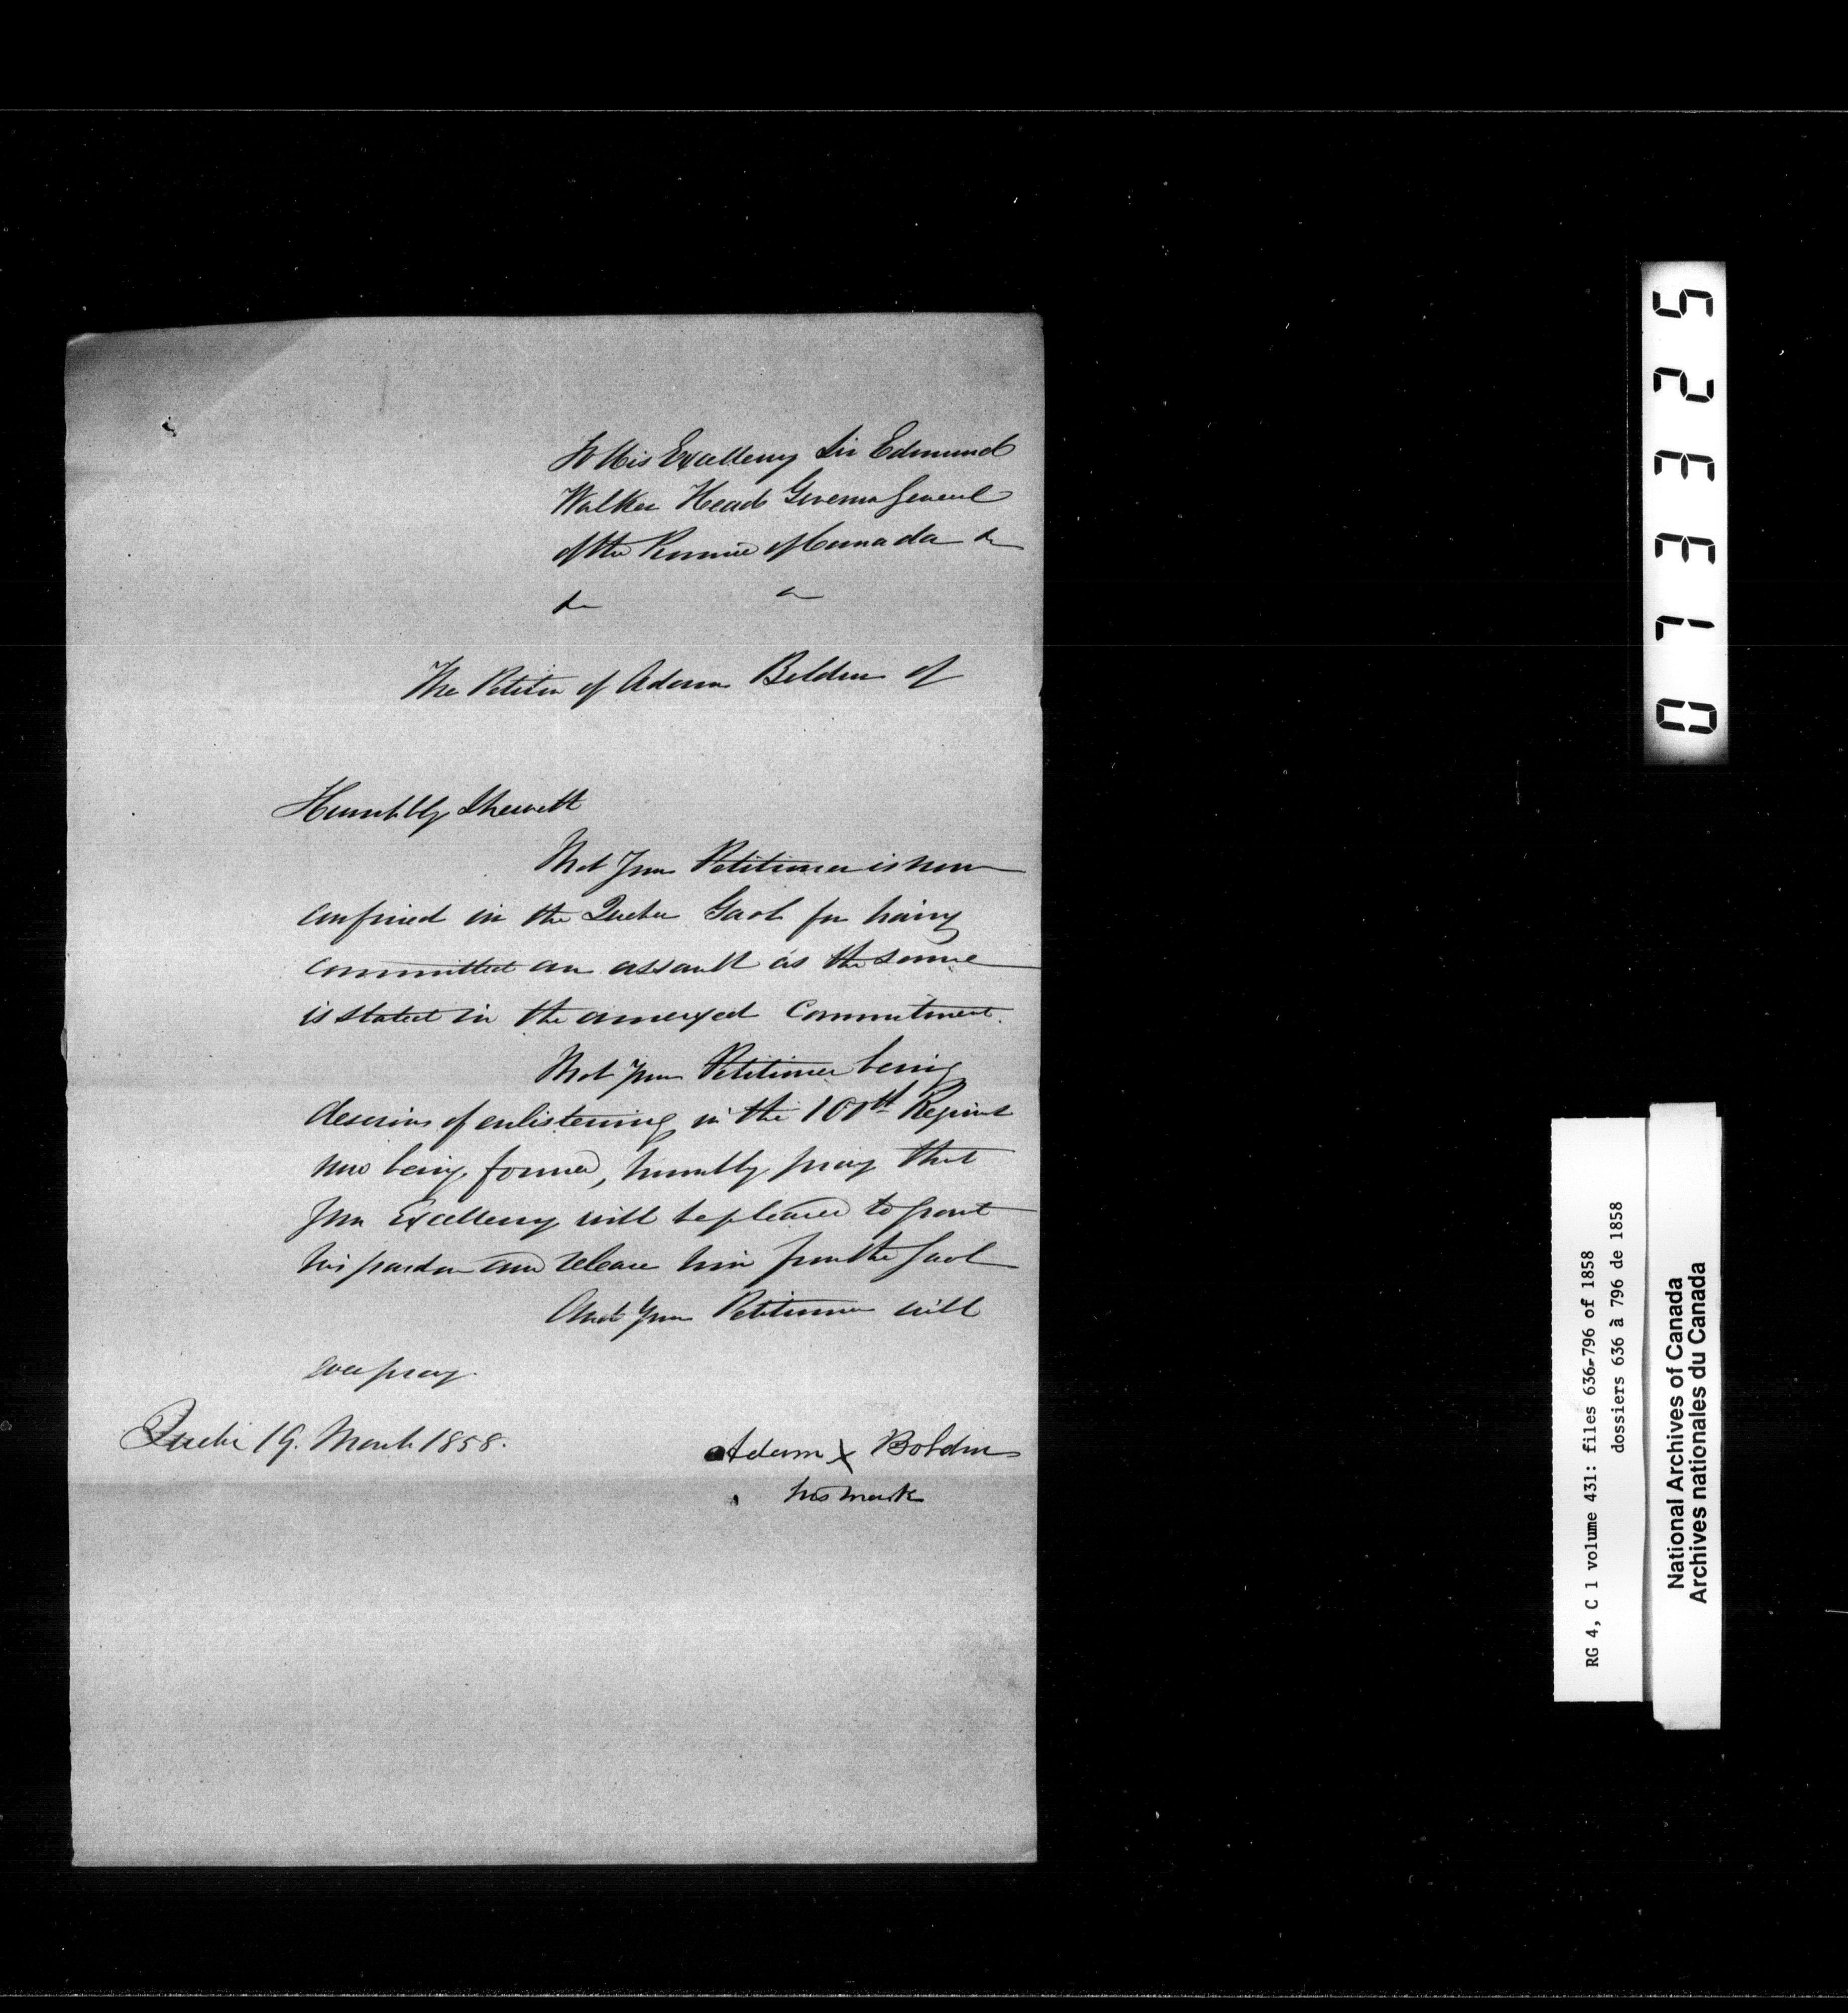 To His Excellency Sir Edmund
Walker Head Governor General
of the Province of Canada &c
&c &c
The Petition of Adam Boldin of
Humbly Sheweth
That Your Petitioner is now
confined in the Quebec Gaol for having
committed an assault as the same
is stated in the annexed Commitment.
That your Petitioner being
desirious of enlistening in the 100th Regiment
now being formed, humbly pray that
Your Excellency will be pleased to grant
his pardon and release him from the Gaol
And your Petitioner will
ever pray.
Quebec 19. March 1858.
Adam X Boldin
his mark
013325
RG 4, C 1 volume 431: files 636-796 of 1858
dossiers 636 à 796 de 1858
National Archives of Canada
Archives nationales du Canada